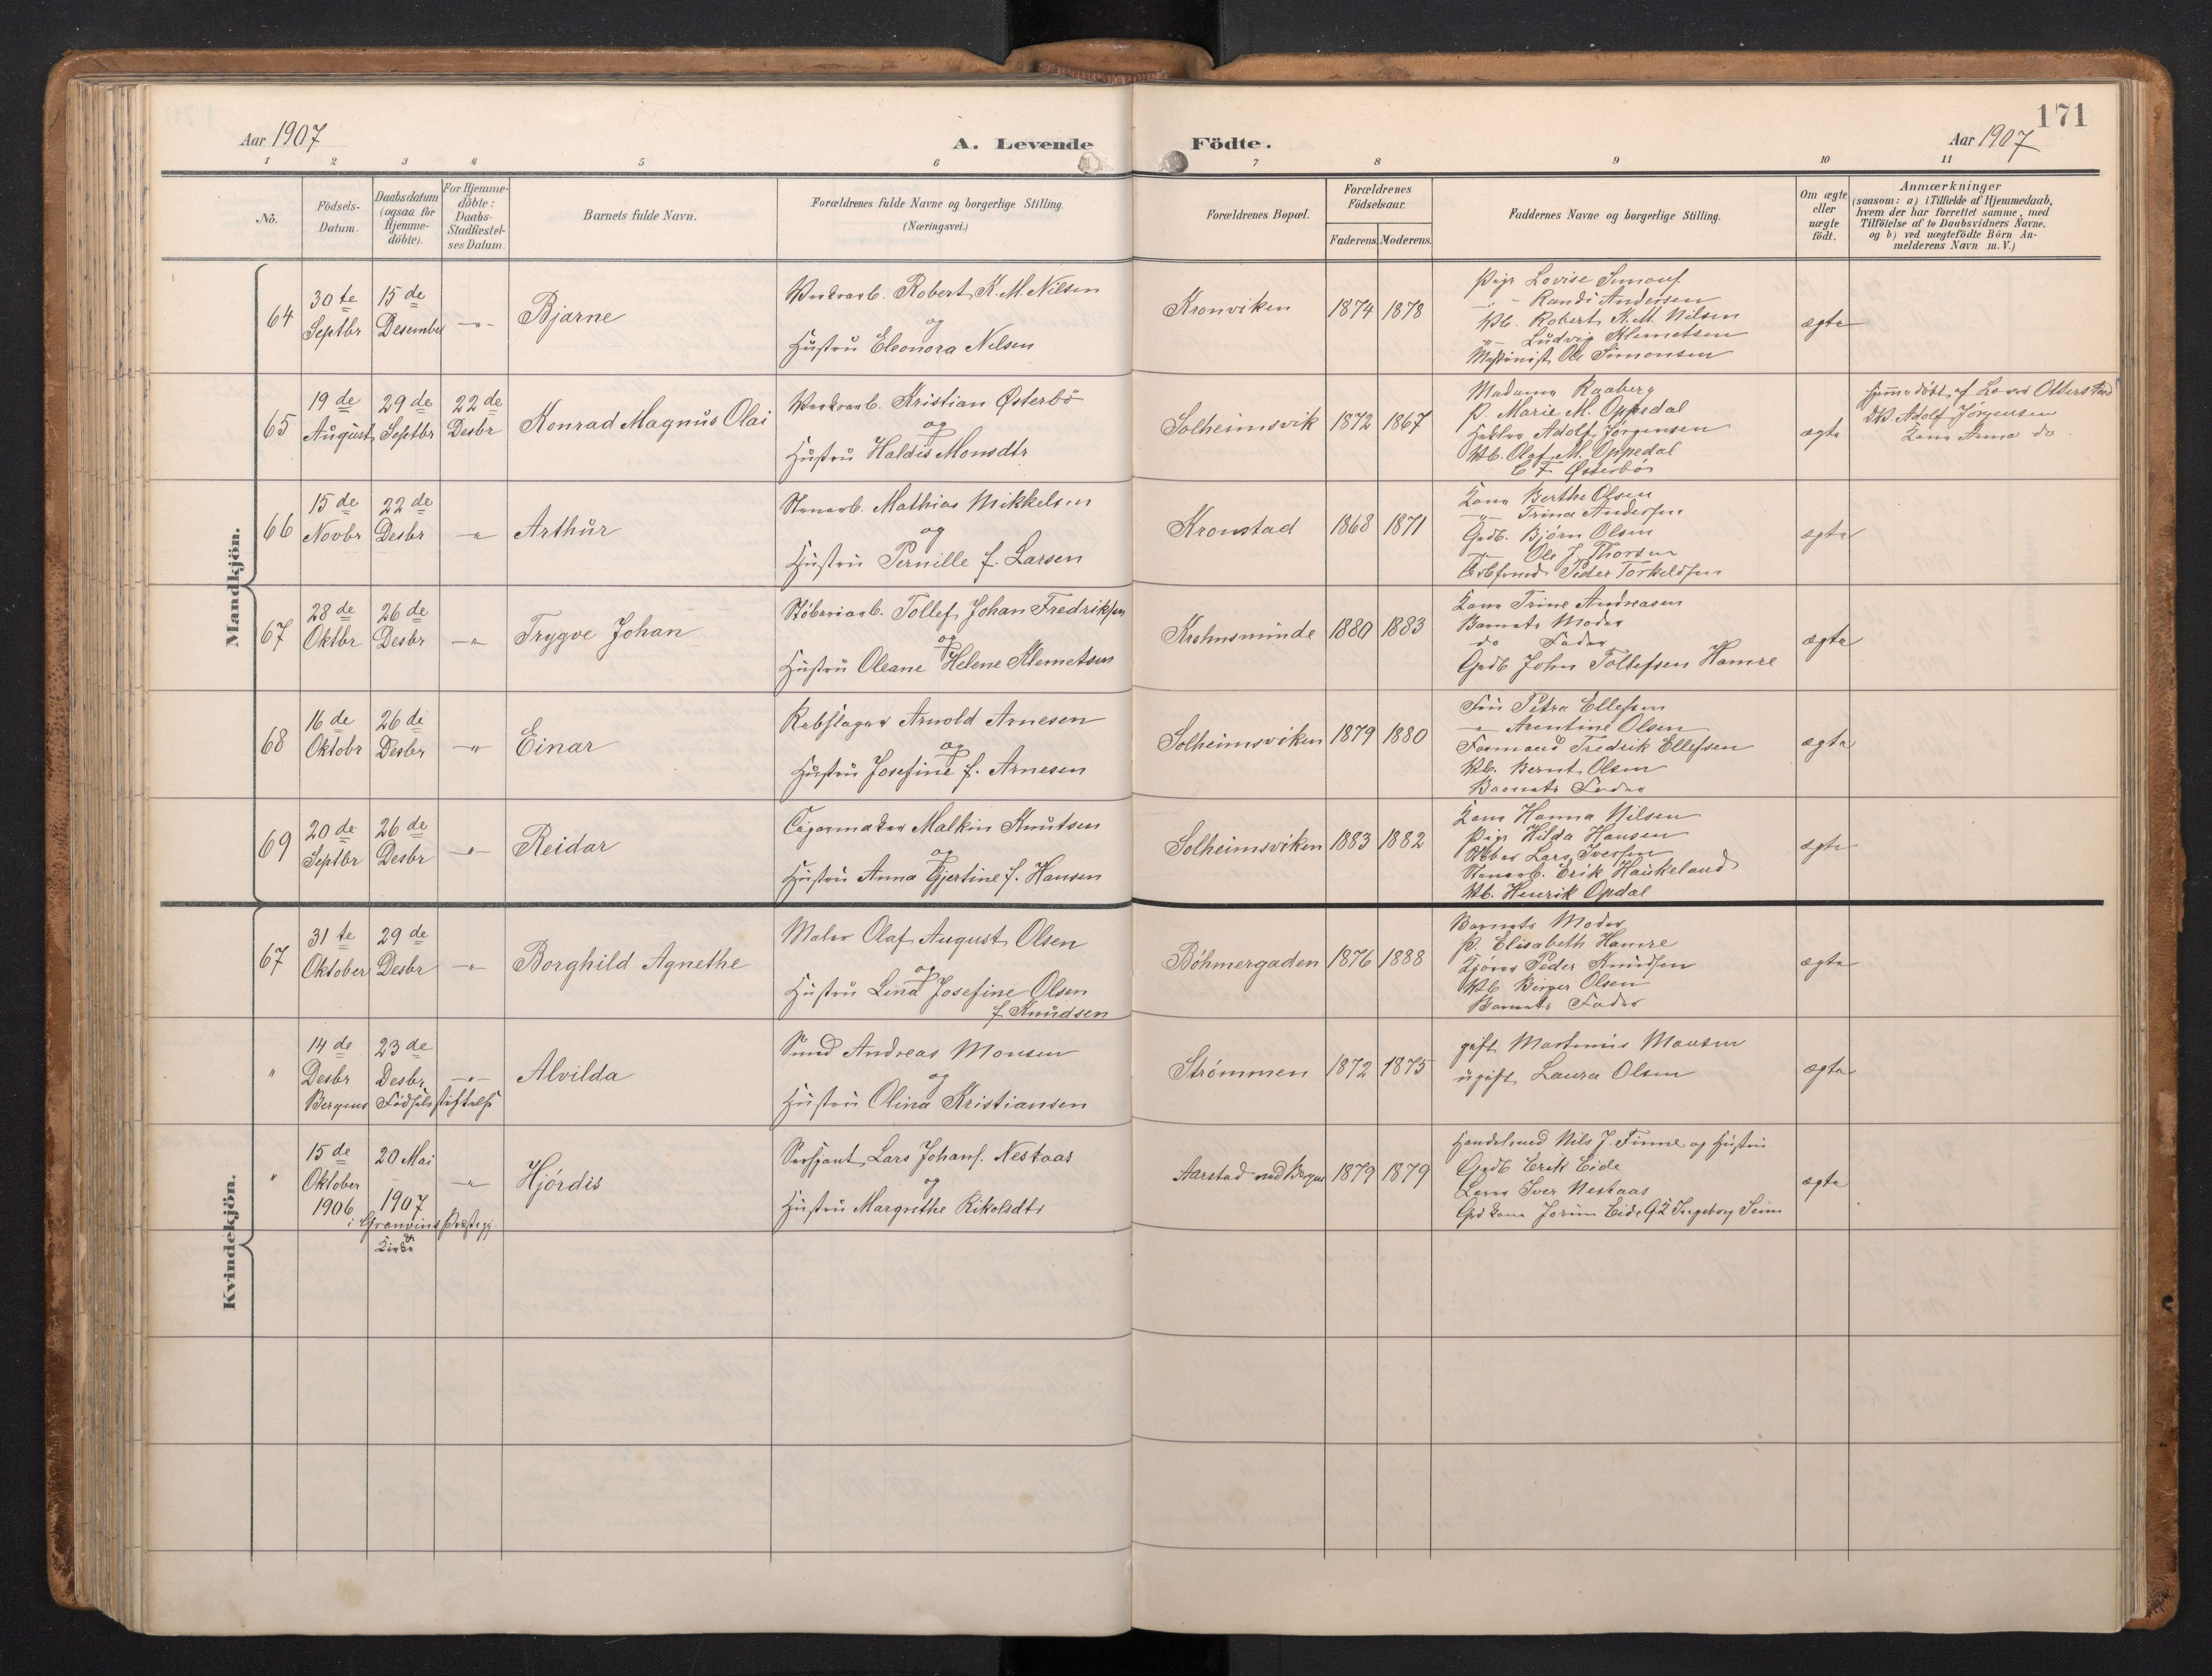 Aar 1907
A. Levende
Födte.
171
Aar 1907
1 2 3 4 5 6 7 8 9 10 11
No.
Födsels-
Datum.
Daabsdatum
(ogsaa for
Hjemme-
döbte).
For Hjemme-
döbte:
Daabs-
Stadfæstel-
ses Datum.
Barnets fulde Navn.
Forældrenes fulde Navne og borgerlige Stilling.
(Næringsvei.)
Forældrenes Bopæl.
Forældrenes
Födselsaar.
Faderens. Moderens.
Faddernes Navne og borgerlige Stilling.
Om ægte
eller
uægte
født.
Anmærkninger
(saasom: a) i Tilfælde af Hjemmedaab,
hvem der har forrettet samme, med
Tilföielse af to Daabsvidners Navne,
og b) ved uægtefödte Börn An-
melderens Navn m. V.)
Mandkjön.
64
30te
Septbr
15de
Desember
-"-
Bjarne
Verksarb. Robert K. M. Nilsen
og
Hustru Eleonora Nilsen
Kronviken
1874 1878
Pige Lovise Simons.
" Randi Andersen
Vb. Robert K. M. Nilsen
"- Ludvig Klemetsen
Maskinist Ole Simonsen
ægte
65
19de
August
29de
Septbr
22de
Desbr
Konrad Magnus Olai
Verksarb. Kristian Østerbö
og
Hustru Haldis Monsdtr
Solheimsvik
1872 1867
Madame Raaberg
P. Marie M. Oppedal
Adolf Jörgensen
Vb. Olaf M. Oppedal
C F Østerbö
ægte
Hjemmedöbt af Lærer Otterstad
DV. Adolf Jörgensen
Kone Anna do
66
15de
Novbr
22de
Desbr
-"-
Arthur
Stenarb. Mathias Mikkelsen
og
Hustru Pernille f. Larsen
Kronstad
1868 1871
Kone Berthe Olsen
-"- Trina Andersen
Grdb. Bjørn Olsen
-"- Ole J. Thorsen
Peder Torkeldsen
ægte
67
28de
Oktbr
26de
Desbr
-"-
Trygve Johan
Støberiarb. Tollef Johan Fredriksen
og
Hustru Oleane Helene Klemetsen
Krohnsminde
1880 1883
Kone Trine Andreasen
Barnets Moder
do Fader
Grdb John Tollefsen Hamre
ægte
68
16de
Oktobr
26de
Desbr
-"-
Einar
Rebslager Arnold Arnesen
og
Hustru Josefine f. Arnesen
Solheimsviken
1879 1880
Fru Petra Ellefsen
-"- Arentine Olsen
Formand Fredrik Ellefsen
Vb. Bernt Olsen
Barnets Fader
ægte
69
20de
Septbr
26de
Desbr
-"-
Reidar
Cigarmaker Malkin Knutsen
og
Hustru Anna Gjertine f. Hansen
Solheimsviken
1883 1882
Kone Hanna Nilsen
Pige Hilda Hansen
Lars Iversen
Stenarb. Erik Haukeland
Vb. Henrik Opdal
ægte
Kvindekjön.
67
31te
Oktober
29de
Desbr
-"-
Borghild Agnethe
Maler Olaf August Olsen
og
Hustru Lina Josefine Olsen
f. Knudsen
Böhmergaden
1876 1888
Barnets Moder
P. Elisabeth Hamre
Peder Knudsen
Vb. Birger Olsen
Barnets Fader
ægte
"
14de
Desbr
23de
Desbr
-"-
Bergens Födselsstiftelse
Alvilda
Smed Andreas Monsen
og
Hustru Olina Kristiansen
Strømmen
1872 1875
gift Martinus Monsen
ugift Laura Olsen
ægte
"
15de
Oktober
1906
20 Mai
1907
-"-
i Granvins Præstegj.
Kirke
Hjördis
Sersjant Lars Johans. Nestaas
og
Hustru Margrethe Rikoldtr
Aarstad ved Bergen
1879 1879
Handelsmd Nils J. Finne og Hustru
Grdb Erik Eide
Iver Nestaas
Grd kone Jorun Eide Ingeborg Seim
ægte